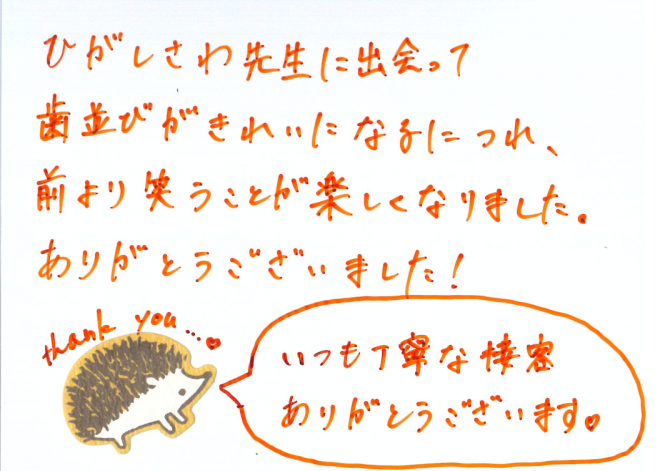 ひがしさわ先生に出会って
歯並びがきれいになるにつれ、
前より笑うことが楽しくなりました。
ありがとうございました！
thank you...♥
いつも丁寧な接客
ありがとうございます♥